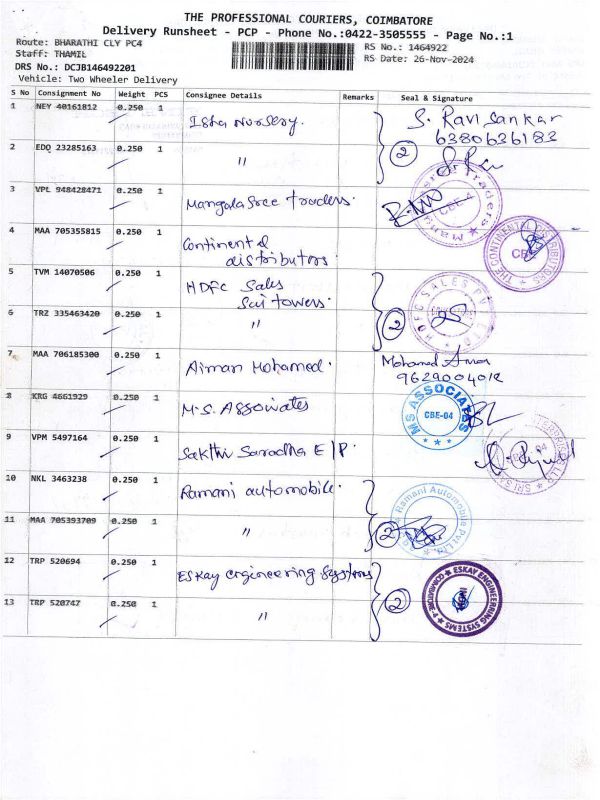 THE PROFESSIONAL COURIERS, COIMBATORE
Delivery Runsheet - PCP - Phone No.:0422-3505555 - Page No.:1
Route: BHARATHI CLY PC4
Staff: THAMIL
DRS No.: DCJB146492201
Vehicle: Two Wheeler Delivery
RS No.: 1464922
RS Date: 26-Nov-2024
S No Consignment No Weight PCS Consignee Details Remarks Seal & Signature
1 NEY 40161812 0.250 1 Isha Nursery. S. Ravisankar
6380636183
2 EDQ 23285163 0.250 1 " 2
3 VPL 948428471 0.250 1 Mangala Sree traders.
4 MAA 705355815 0.250 1 Continental
distributors. THE CONTINENTAL DISTRIBUTORS
5 TVM 14070506 0.250 1 HDFC Sales
Sai towers. HDFC SALES PVT LTD
6 TRZ 335463420 0.250 1 " 2
7 MAA 706185300 0.250 1 Aiman Mohamed. Mohamed Aiman
9629004012
8 KRG 4661929 0.250 1 M.S. Associates MS ASSOCIATES
CBE-04
9 VPM 5497164 0.250 1 Sakthi Saradha E/P.
10 NKL 3463238 0.250 1 Ramani automobile. Ramani Automobile Pvt Ltd
11 MAA 705393709 0.250 1 " 2
12 TRP 520694 0.250 1 Eskay engineering Systems ESKAY ENGINEERING SYSTEMS
13 TRP 520747 0.250 1 " 2